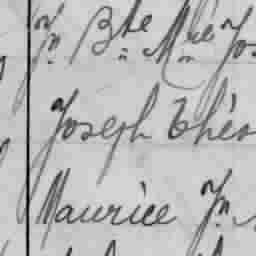 Jn Bte Mrie Jos
Joseph Théo
Maurice Jn